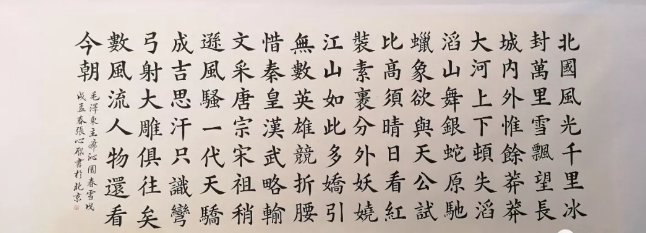 北國風光千里冰
封萬里雪飄望長
城内外惟餘莽莽
大河上下頓失滔
滔山舞銀蛇原馳
蠟象欲與天公試
比高須晴日看紅
裝素裹分外妖嬈
江山如此多嬌引
無數英雄競折腰
惜秦皇漢武略輸
文采唐宗宋祖稍
遜風騷一代天驕
成吉思汗只識彎
弓射大雕俱往矣
數風流人物還看
今朝
毛澤東主席沁園春雪戊
戌孟春張心書於北京